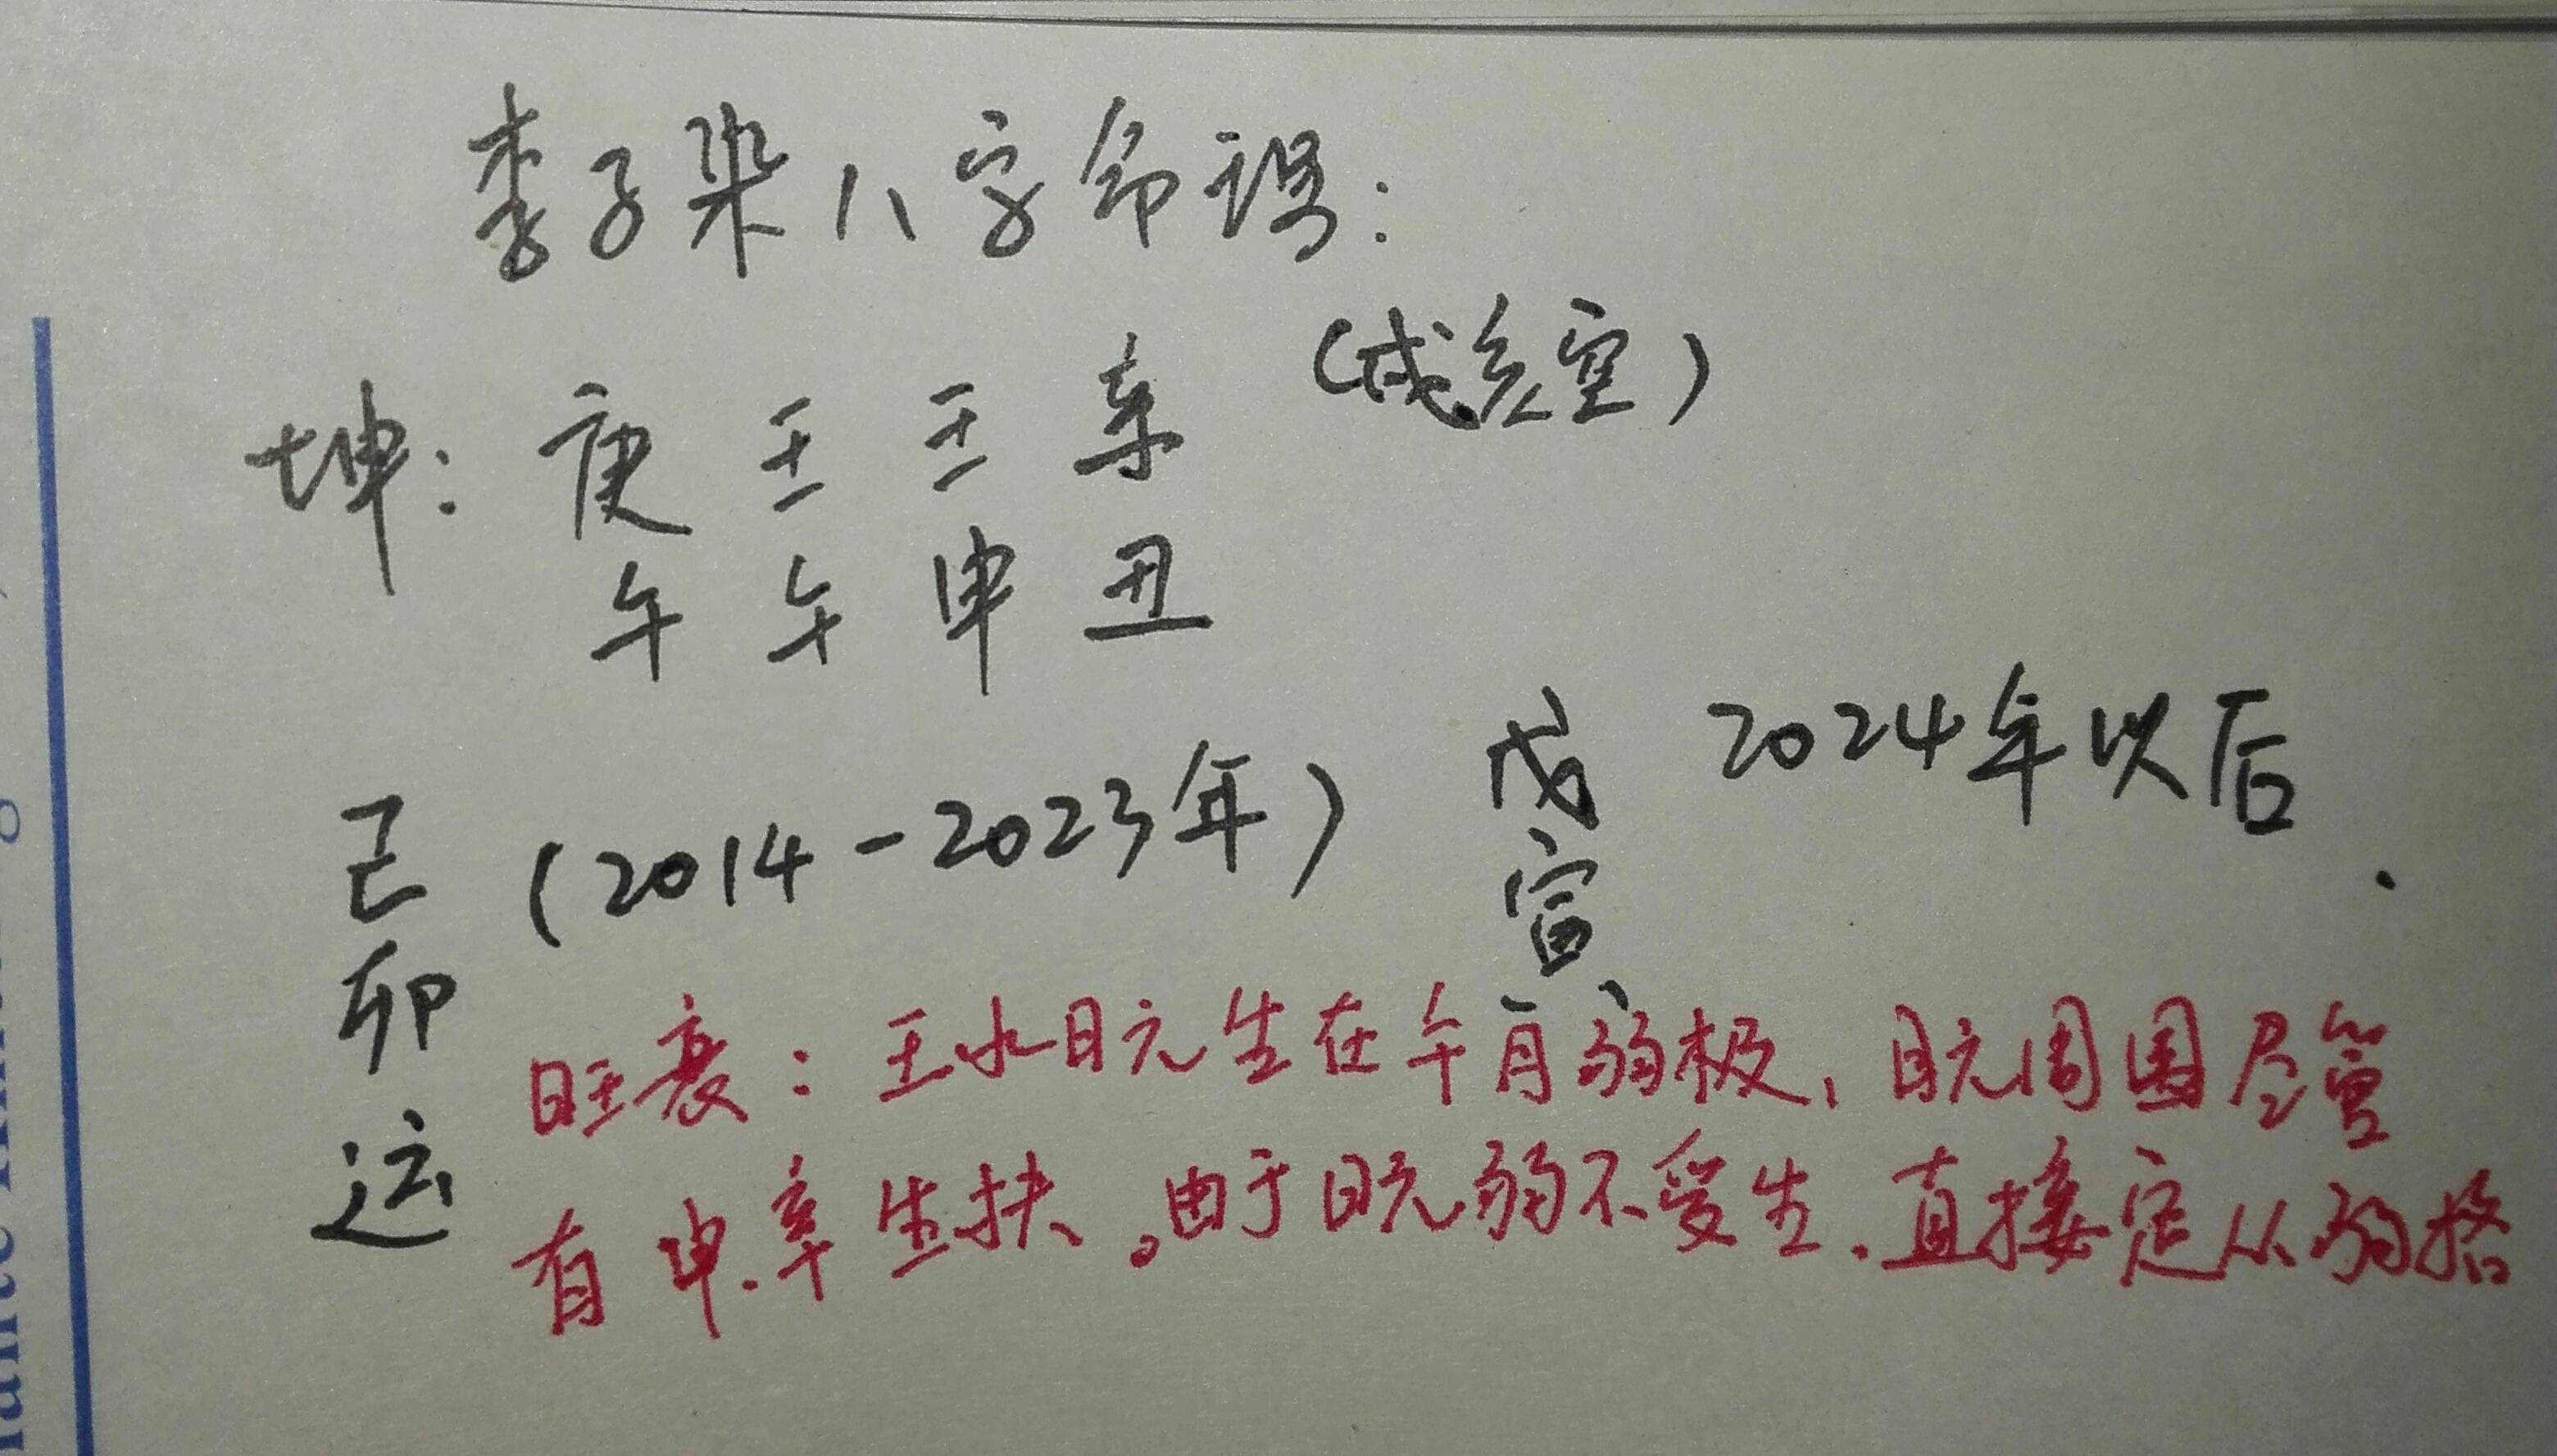 李子染八字命理:
坤: 庚 壬 壬 辛 (戌亥空)
午 午 申 丑
己卯运 (2014-2023年) 戊寅 2024年以后.
旺衰: 壬水日元生在午月弱极, 日元周围尽管
有申.辛生扶。由于日元弱不受生.直接定从弱格